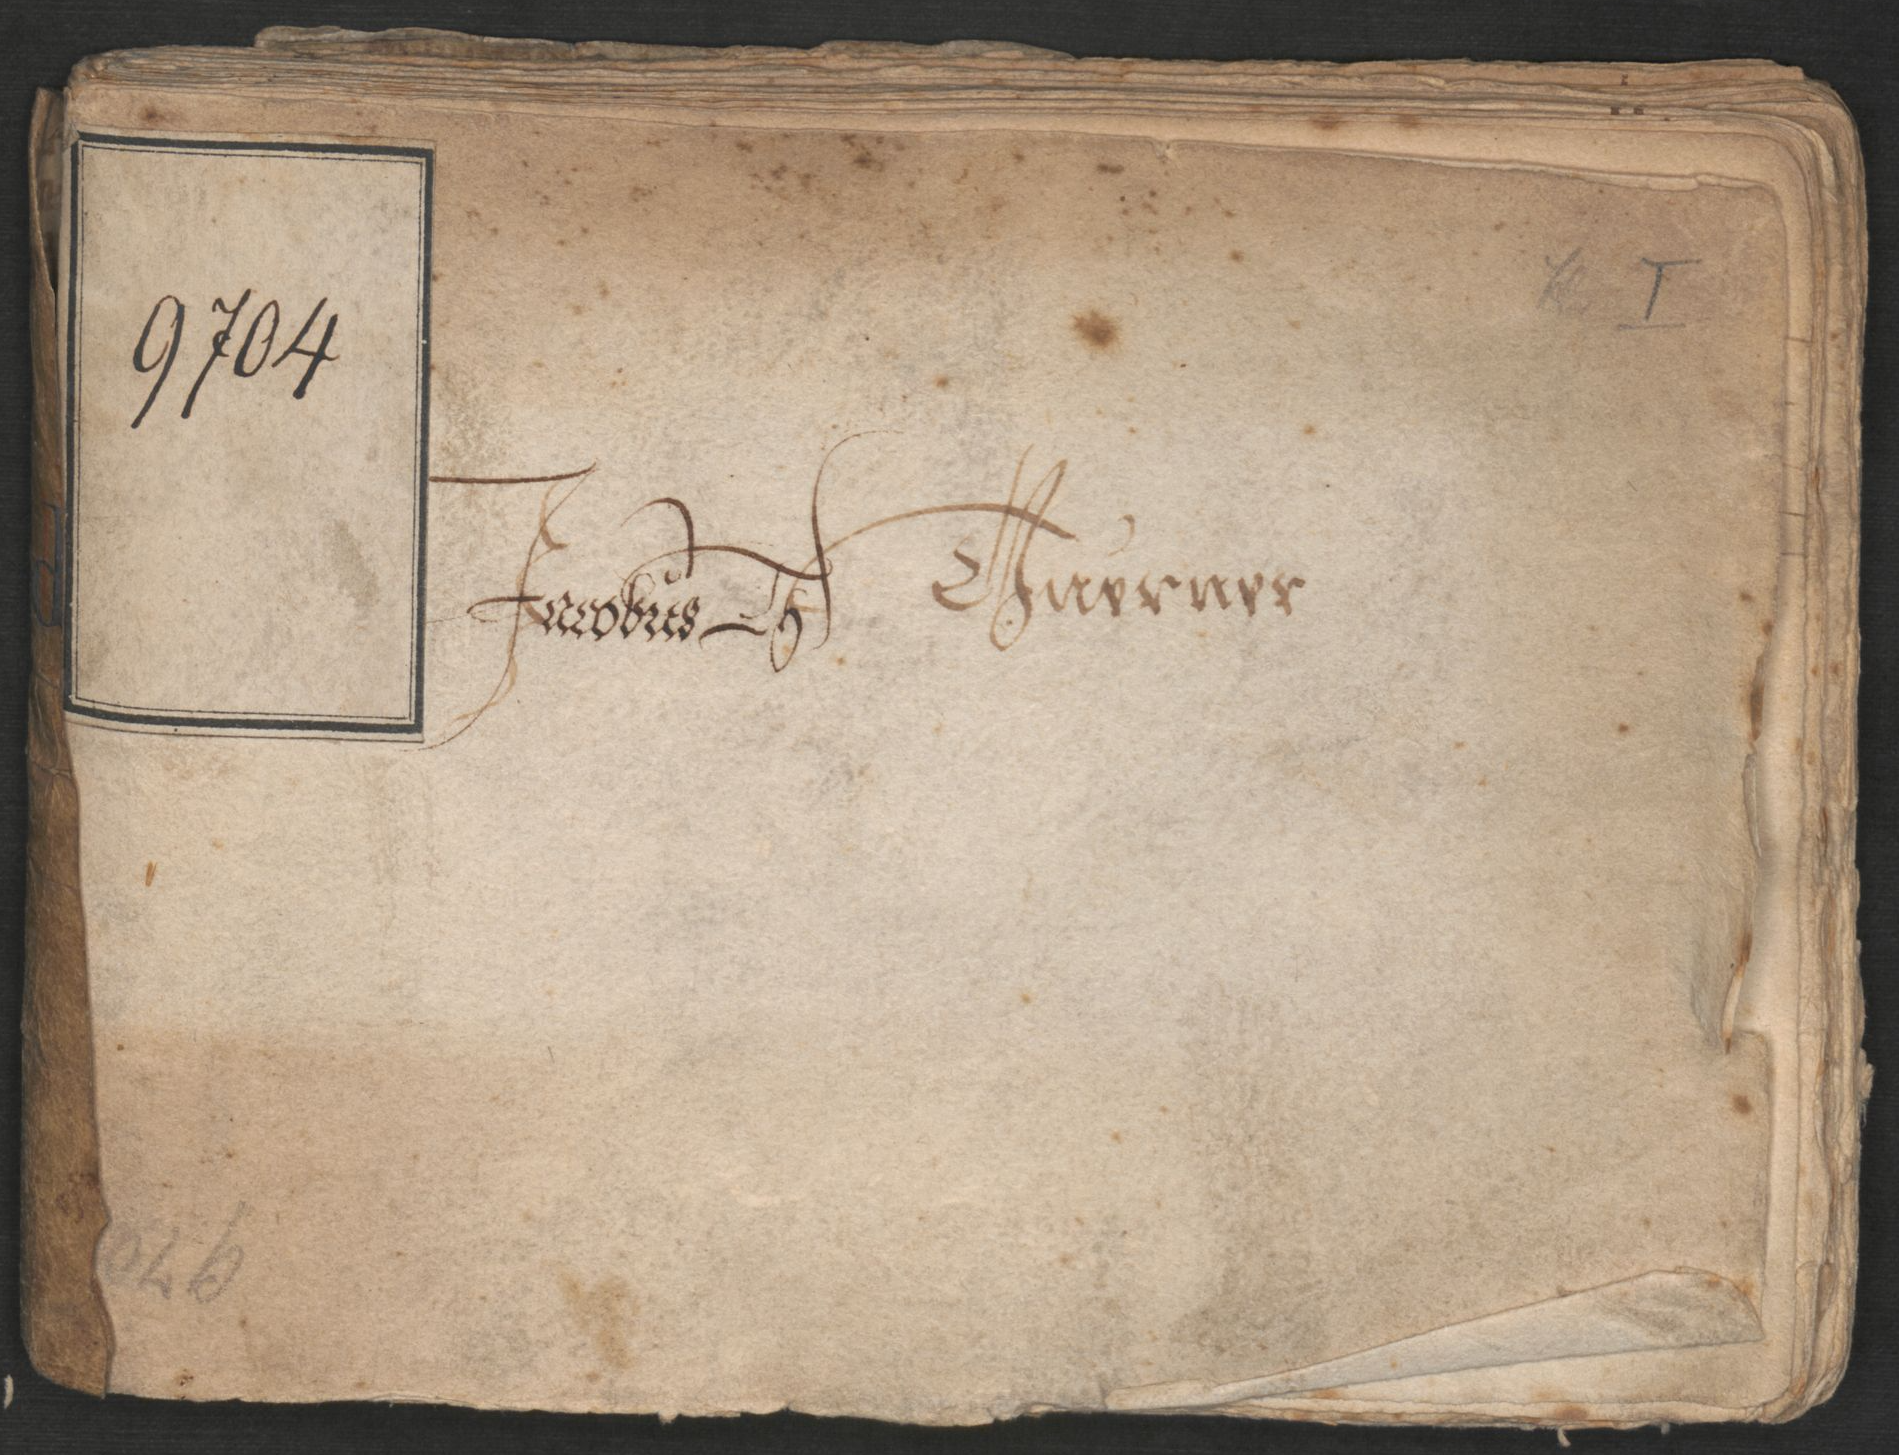 9704
T
Jacobus Th Guerner
970